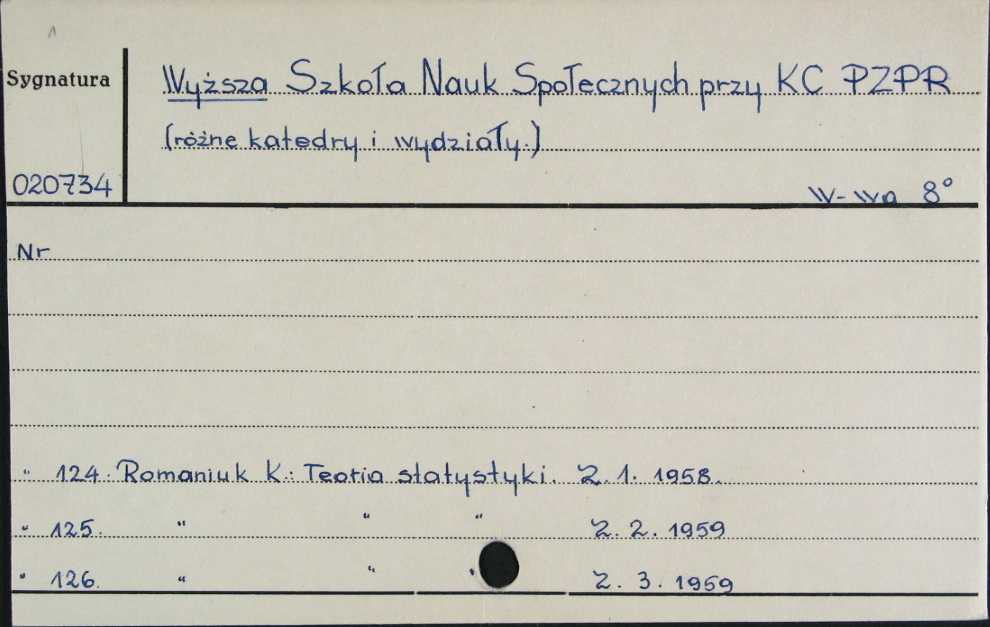 1
Sygnatura
Wyższa Szkoła Nauk Społecznych przy KC PZPR
(różne katedry i wydziały.)
020734
W-wa 8°
Nr
" 124. Romaniuk K.: Teoria statystyki. Z. 1. 1958.
" 125. " " " Z. 2. 1959
" 126. " " " Z. 3. 1959